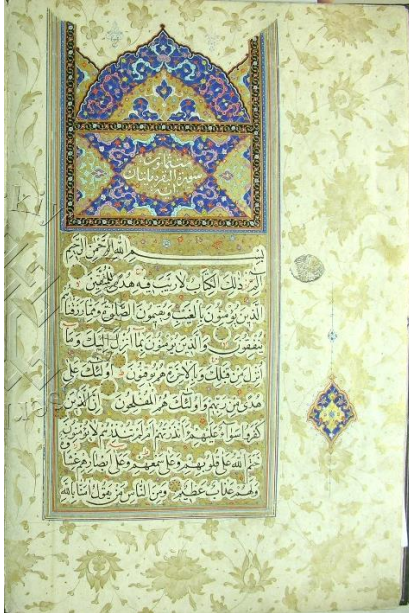 سورة البقرة مائتان
بسم الله الرحمن الرحيم
الم ذلك الكتاب لا ريب فيه هدى للمتقين
الذين يؤمنون بالغيب ويقيمون الصلوة ومما رزقناهم
ينفقون والذين يؤمنون بما انزل اليك وما
انزل من قبلك وبالاخرة هم يوقنون اولئك على
هدى من ربهم واولئك هم المفلحون ان الذين
كفروا سواء عليهم ءانذرتهم ام لم تنذرهم لا يؤمنون
ختم الله على قلوبهم وعلى سمعهم وعلى ابصارهم غشاوة
ولهم عذاب عظيم ومن الناس من يقول امنا بالله